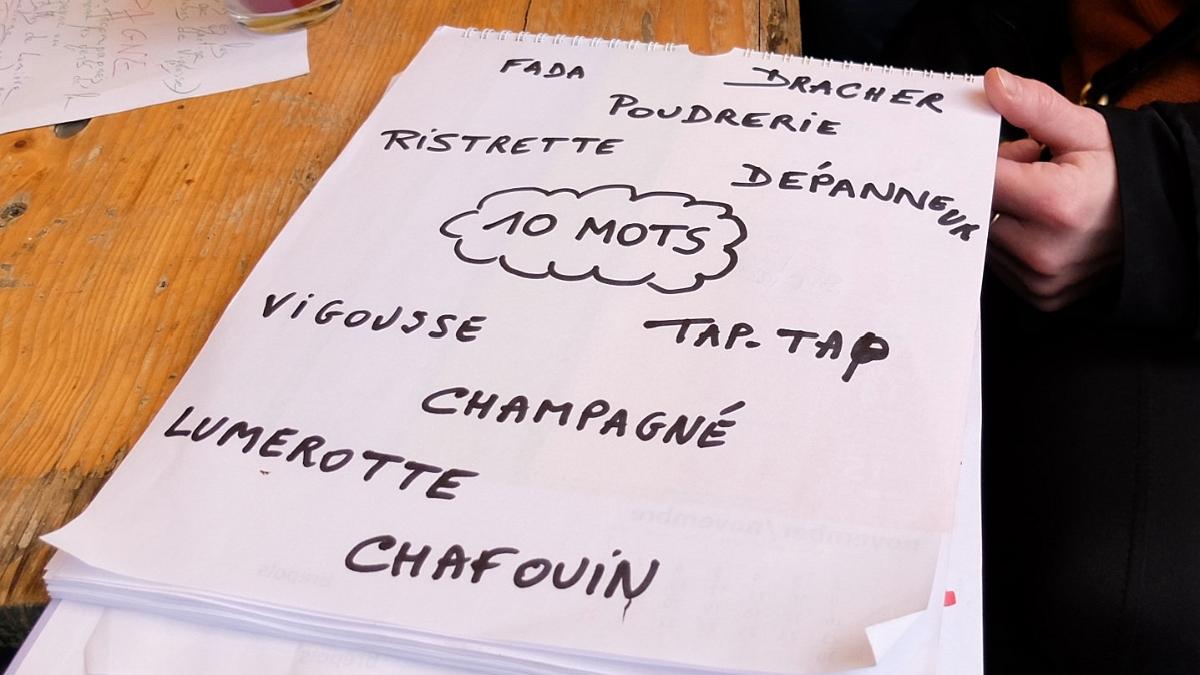 FADA
DRACHER
POUDRERIE
RISTRETTE
DÉPANNEUR
10 MOTS
VIGOUSSE
TAP-TAP
CHAMPAGNÉ
LUMEROTTE
CHAFOUIN
november/novembre
Brepols